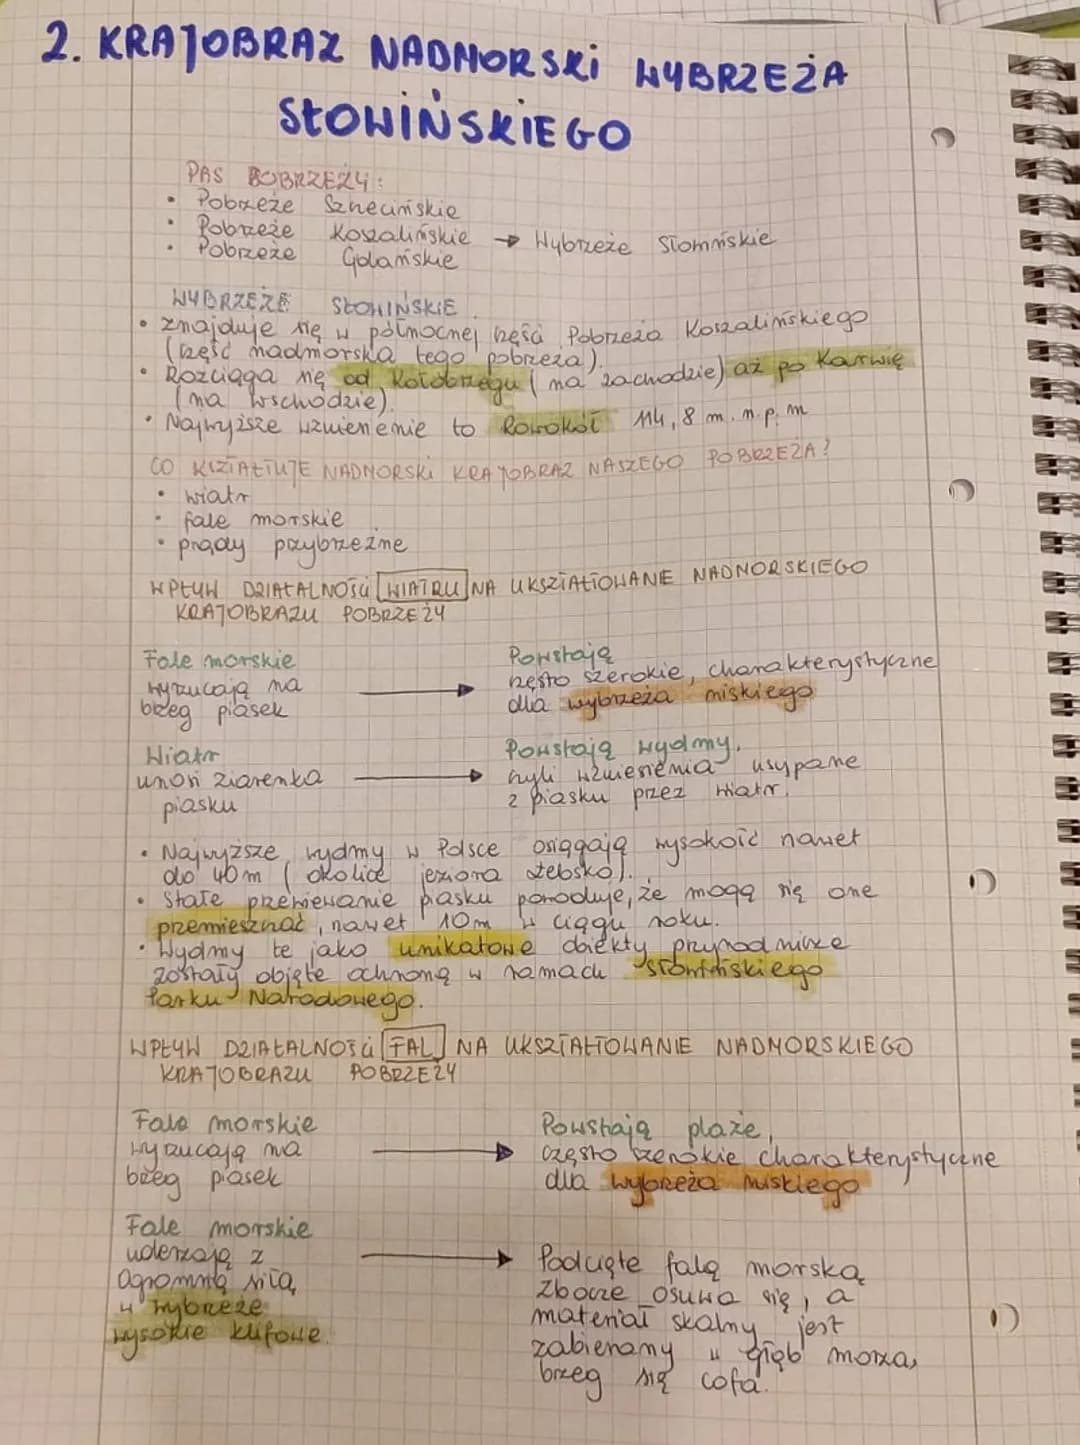 2. KRAJOBRAZ NADMORSKi WYBRZEŻA
SŁOWIŃSKIEGO
PAS POBRZEŻY:
• Pobrzeże Szczecińskie
• Pobrzeże Koszalińskie → Wybrzeże Słowińskie
• Pobrzeże Gdańskie
WYBRZEŻE SŁOWIŃSKIE
• znajduje się w północnej części Pobrzeża Koszalińskiego
(część nadmorska tego pobrzeża).
• Rozciąga się od Kołobrzegu (na zachodzie) aż po Karwię
(na wschodzie).
• Najwyższe wzniesienie to Rowokół 114,8 m.n.p.m
CO KSZTAŁTUJE NADMORSKi KRAJOBRAZ NASZEGO POBRZEŻA?
• wiatr
• fale morskie
• prądy przybrzeżne
WPŁYW DZIAŁALNOŚCi WIATRU NA UKSZTAŁTOWANIE NADMORSKIEGO
KRAJOBRAZU POBRZEŻY
Fale morskie
wyrzucają na
brzeg piasek
Powstają
często szerokie, charakterystyczne
dla wybrzeża niskiego
Wiatr
unosi ziarenka
piasku
Powstają wydmy,
czyli wzniesienia usypane
z piasku przez wiatr.
• Najwyższe wydmy w Polsce osiągają wysokość nawet
do 40m (okolice jeziora Łebsko).
• Stałe przewiewanie piasku powoduje, że mogą się one
przemieszczać, nawet 10m w ciągu roku.
• Wydmy te jako unikatowe obiekty przyrodnicze
zostały objęte ochroną w ramach Słowińskiego
Parku Narodowego.
WPŁYW DZIAŁALNOŚCi FAL NA UKSZTAŁTOWANIE NADMORSKIEGO
KRAJOBRAZU POBRZEŻY
Fale morskie
wyrzucają na
brzeg piasek
Powstają plaże,
często szerokie charakterystyczne
dla wybrzeża niskiego
Fale morskie
uderzają z
ogromną siłą
w wybrzeże
wysokie klifowe.
Podcięte falą morską
zbocze osuwa się, a
materiał skalny jest
zabierany w głąb morza,
brzeg się cofa.